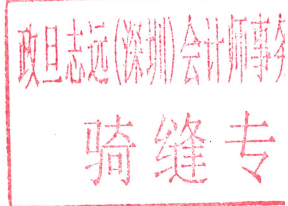 政旦志远(深圳)会计师事务
骑缝专